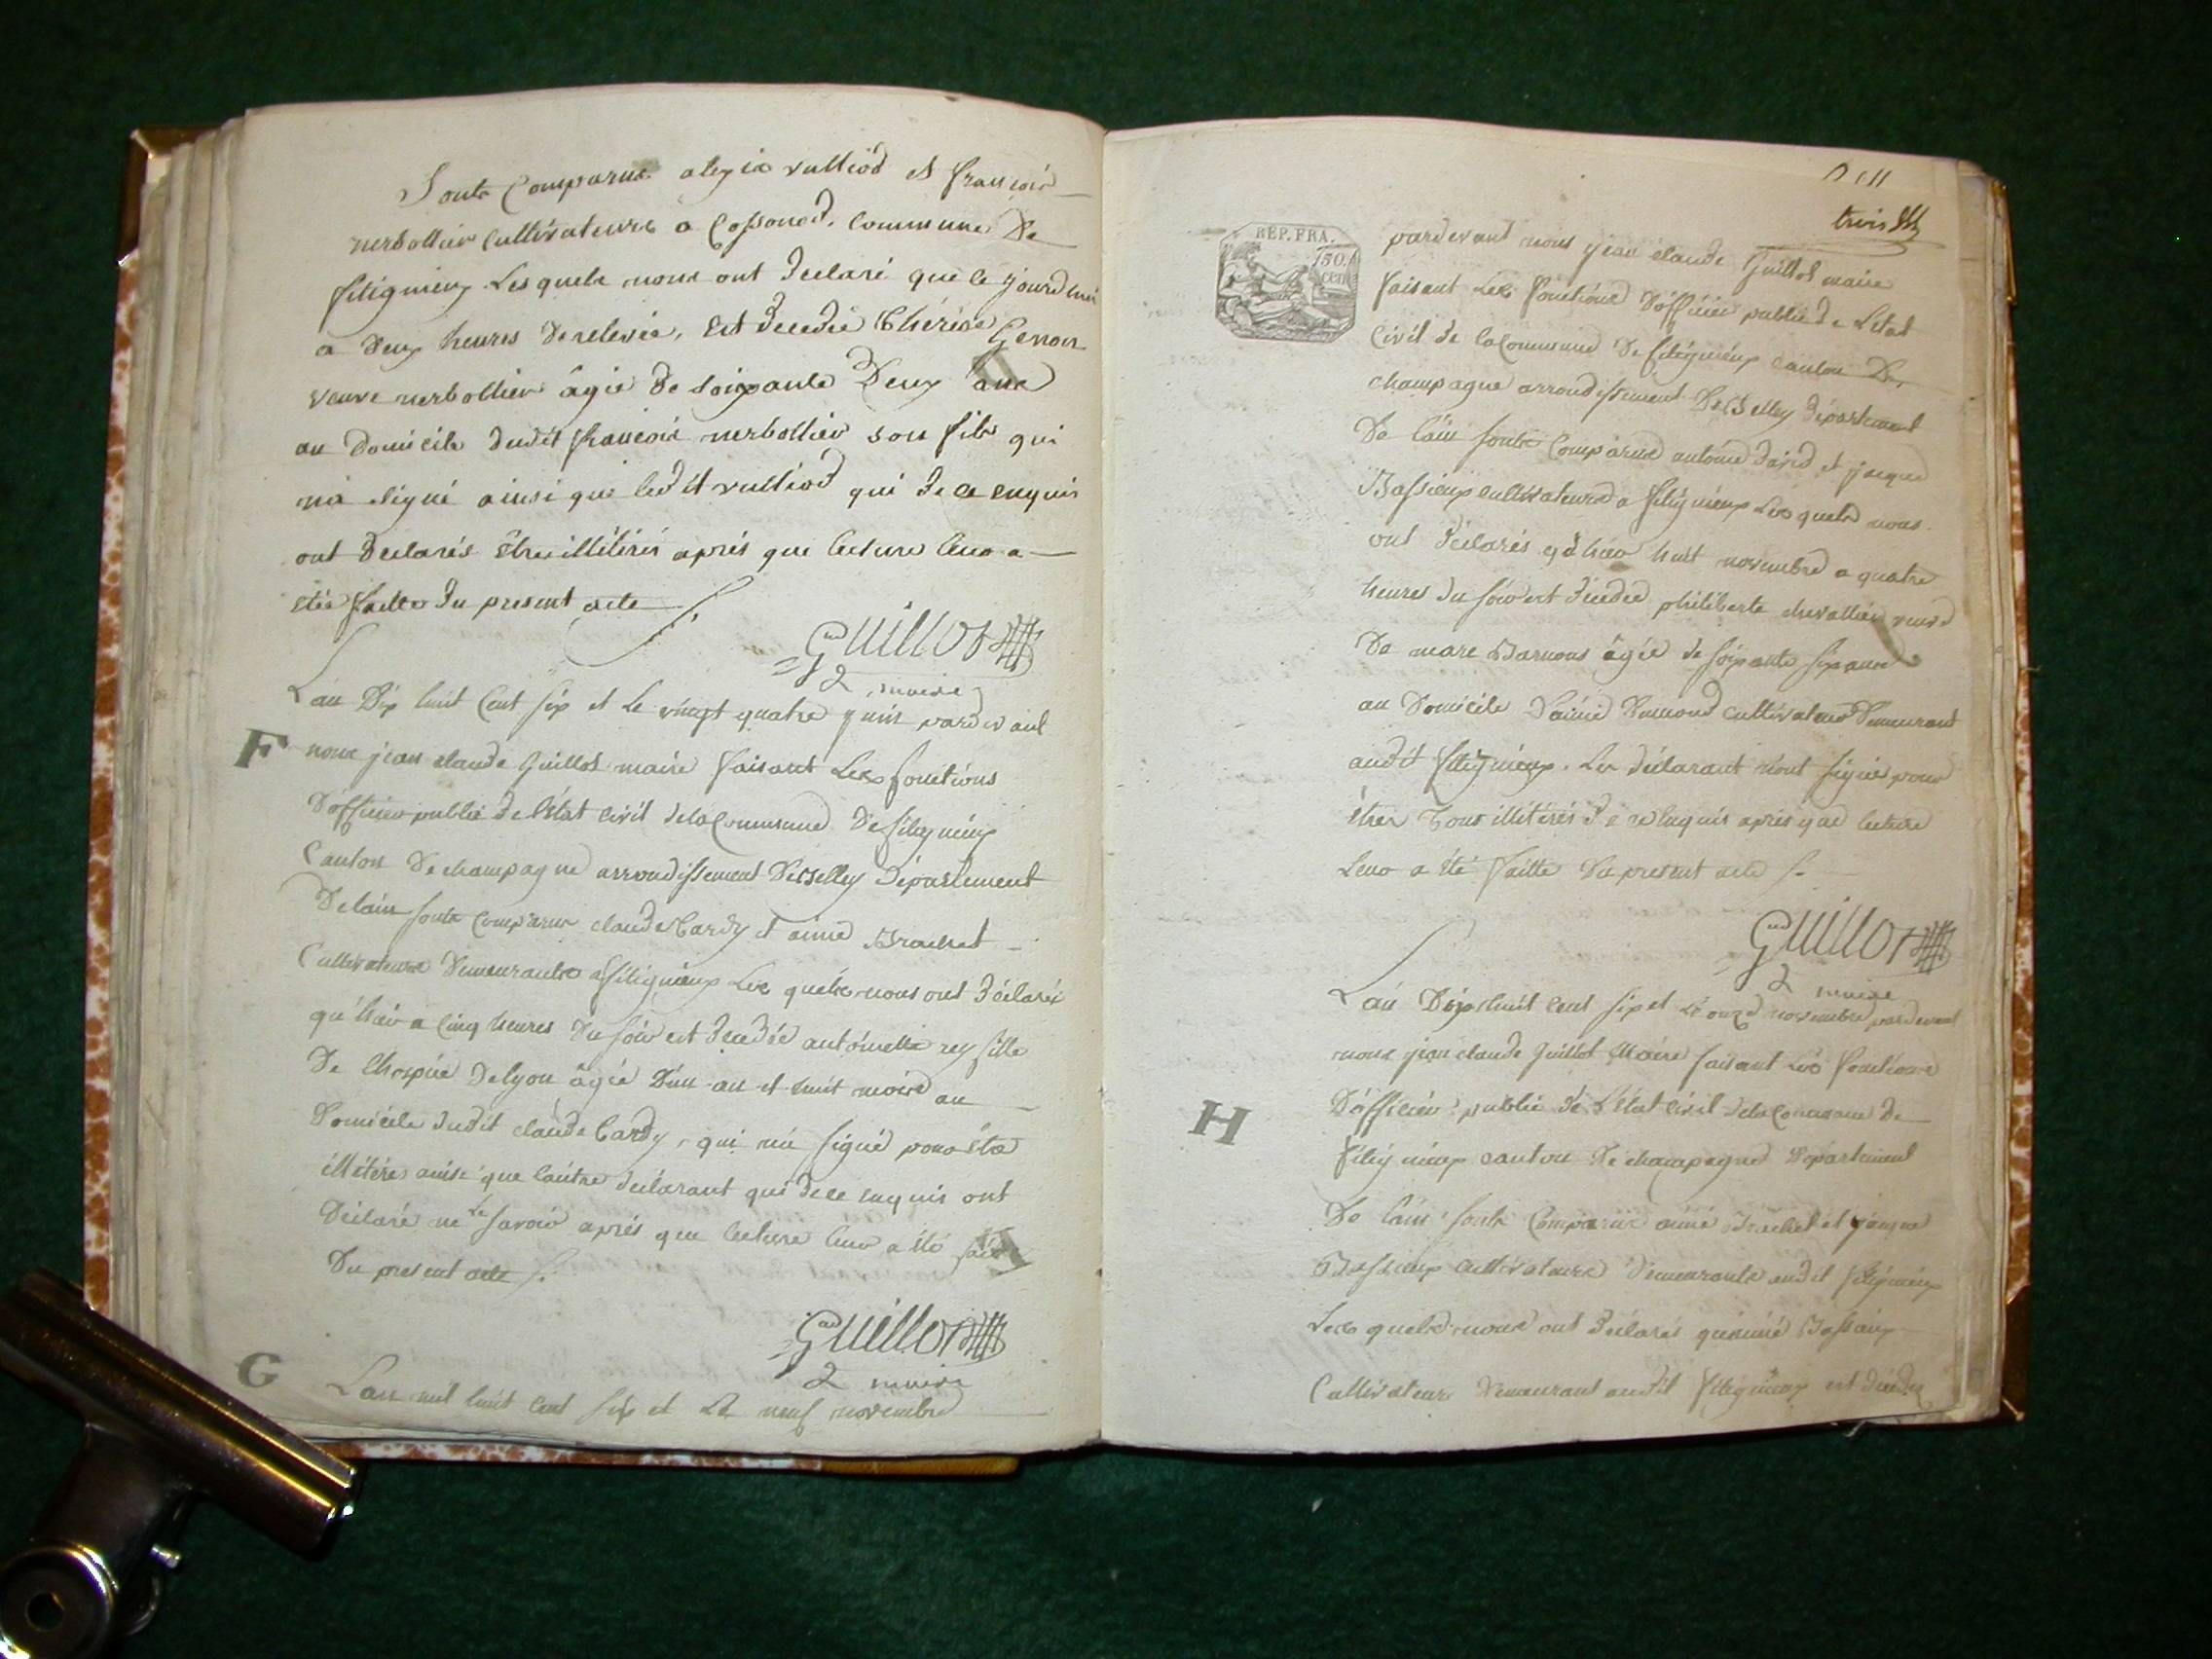 Sonts Comparus alexis vulliod et françois
merbollier cultivateurs a Cossoned, commune De
fitignieux Lesquels nous ont declaré que ce jourdhui
a deux heures de relevée, est decedée Thérèse Genon
veuve merbollier âgée de soixante Deux ans
au Domicile dudit françois merbollier son fils qui
n'a signé ainsi que ledit vulliod qui de ce enquis
ont declarés être illitérés après que lecture leur a
étée faitte du present acte
Guillot
2 maire
F
Lan Dix huit Cent six et Le vingt quatre juin pardevant
nous jean claude Guillot maire faisant Les fonctions
D'officier public de l'état civil de la Commune De fitignieux
Canton De champagne arrondissement De Belley Département
De lain sonts comparus claude Cardy et aimé Brachet
Cultivateurs Demeurants a fitignieux Les quels nous ont Déclaré
qu'hier a cinq heures Du soir est decedée antoinette rey fille
De Lhospice De lyon âgée D'un an et huit mois au
Domicile dudit claude Cardy, qui n'a signé pour être
illitéré ainsi que lautre déclarant qui de ce enquis ont
Déclaré ne le savoir après que lecture leur a été faitte
Du present acte
Guillot
2 maire
G
Lan mil huit cent six et Le neuf novembre
trois
REP. FRA.
50 CENT
pardevant nous jean claude Guillot maire
faisant Les fonctions D'officier public de Létat
Civil de la Commune De fitignieux canton De
champagne arrondissement De Belley département
De l'ain sonts Comparus antoine David et jacques
Bassieux cultivateurs a fitignieux Les quels nous
ont déclarés qu'hier huit novembre a quatre
heures du soir est décedée philiberte chevallier veuve
De marc Darnous âgée de soixante six ans
au Domicile D'aimé Dumond cultivateur Demeurant
audit fitignieux. Les déclarant n'ont signés pour
être Tous illitérés de ce enquis après que lecture
Leur a été faitte Du present acte
Guillot
2 maire
H
Lan Dix huit cent six et Le onze novembre pardevant
nous jean claude Guillot Maire faisant Les fonctions
D'officier public de L'état civil de la Commune de
fitignieux canton De champagne Département
De l'ain sonts Comparus aimé Brachet et jacques
Bassieux cultivateurs Demeurants audit fitignieux
Les quels nous ont déclarés qu'aimé Bassieux
Cultivateur Demeurant audit fitignieux est décedé